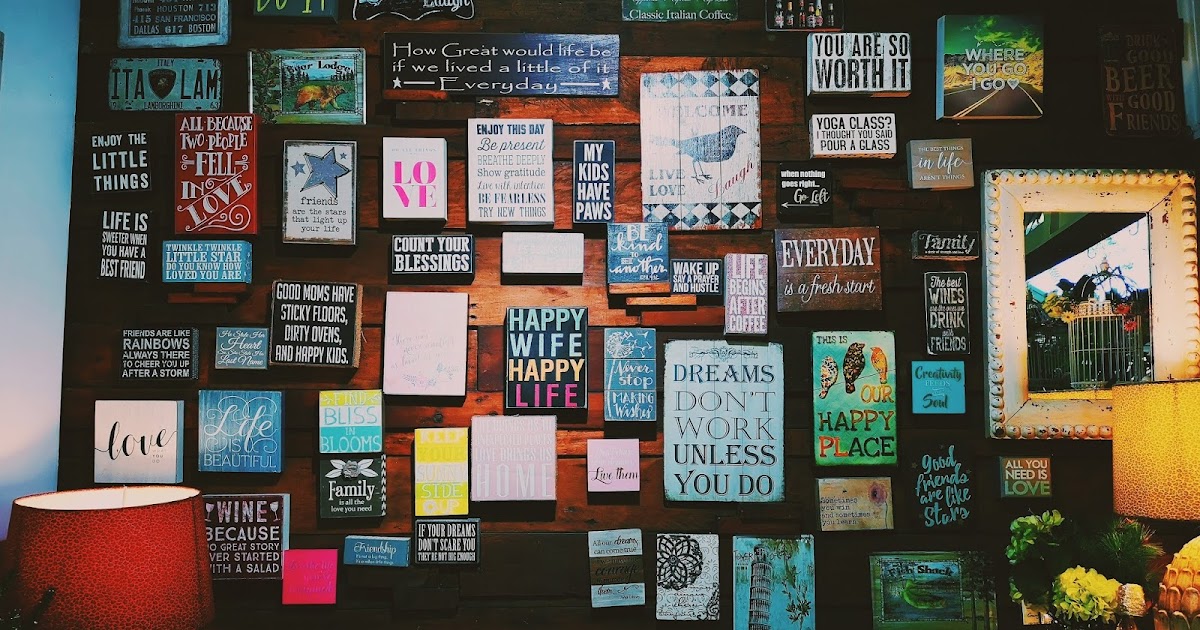 HOUSTON 713
415 SAN FRANCISCO
DALLAS 617 BOSTON
DO IT
Laugh
Classic Italian Coffee
ITALY
ITA LAM
LAMBORGHINI
Lodge
How Great would life be
if we lived a little of it
Everyday
YOU ARE SO
WORTH IT
WHERE
YOU GO
I GO
DRINK
GOOD
BEER
WITH GOOD
FRIENDS
ENJOY THE
LITTLE
THINGS
ALL BECAUSE
TWO PEOPLE
FELL
IN
LOVE
friends
are the stars
that light up
your life
LO
VE
ENJOY THIS DAY
Be present
BREATHE DEEPLY
Show gratitude
Live with intention
BE FEARLESS
TRY NEW THINGS
MY
KIDS
HAVE
PAWS
WELCOME
LIVE
LOVE
Laugh
YOGA CLASS?
I THOUGHT YOU SAID
POUR A GLASS
when nothing
goes right...
Go Left
THE BEST THINGS
in life
AREN'T THINGS
LIFE IS
SWEETER WHEN
YOU HAVE A
BEST FRIEND
TWINKLE TWINKLE
LITTLE STAR
DO YOU KNOW HOW
LOVED YOU ARE
COUNT YOUR
BLESSINGS
BE
kind
to one
another
WAKE UP
SAY A PRAYER
AND HUSTLE
LIFE
BEGINS
AFTER
COFFEE
EVERYDAY
is a fresh start
Family
GOOD MOMS HAVE
STICKY FLOORS,
DIRTY OVENS,
AND HAPPY KIDS.
The best
WINES
are the ones we
DRINK
with
FRIENDS
FRIENDS ARE LIKE
RAINBOWS
ALWAYS THERE
TO CHEER YOU UP
AFTER A STORM
He Stole Her
Heart
So She Stole His
Last Name
HAPPY
WIFE
HAPPY
LIFE
Never
stop
MAKING
Wishes
DREAMS
DON'T
WORK
UNLESS
YOU DO
THIS IS
OUR
HAPPY
PLACE
Creativity
FEEDS THE
Soul
love
Life
IS
BEAUTIFUL
FIND
BLISS
IN
BLOOMS
Family
is all the
love you need
KEEP
YOUR
SUNNY
SIDE
UP
HOME
Live them
Sometimes
you win
and sometimes
you learn
Good
friends
are like
Stars
ALL YOU
NEED IS
LOVE
WINE
BECAUSE
NO GREAT STORY
EVER STARTED
WITH A SALAD
Friendship
IF YOUR DREAMS
DON'T SCARE YOU
THEY'RE NOT BIG ENOUGH
All our dreams
can come true
courage
Shack